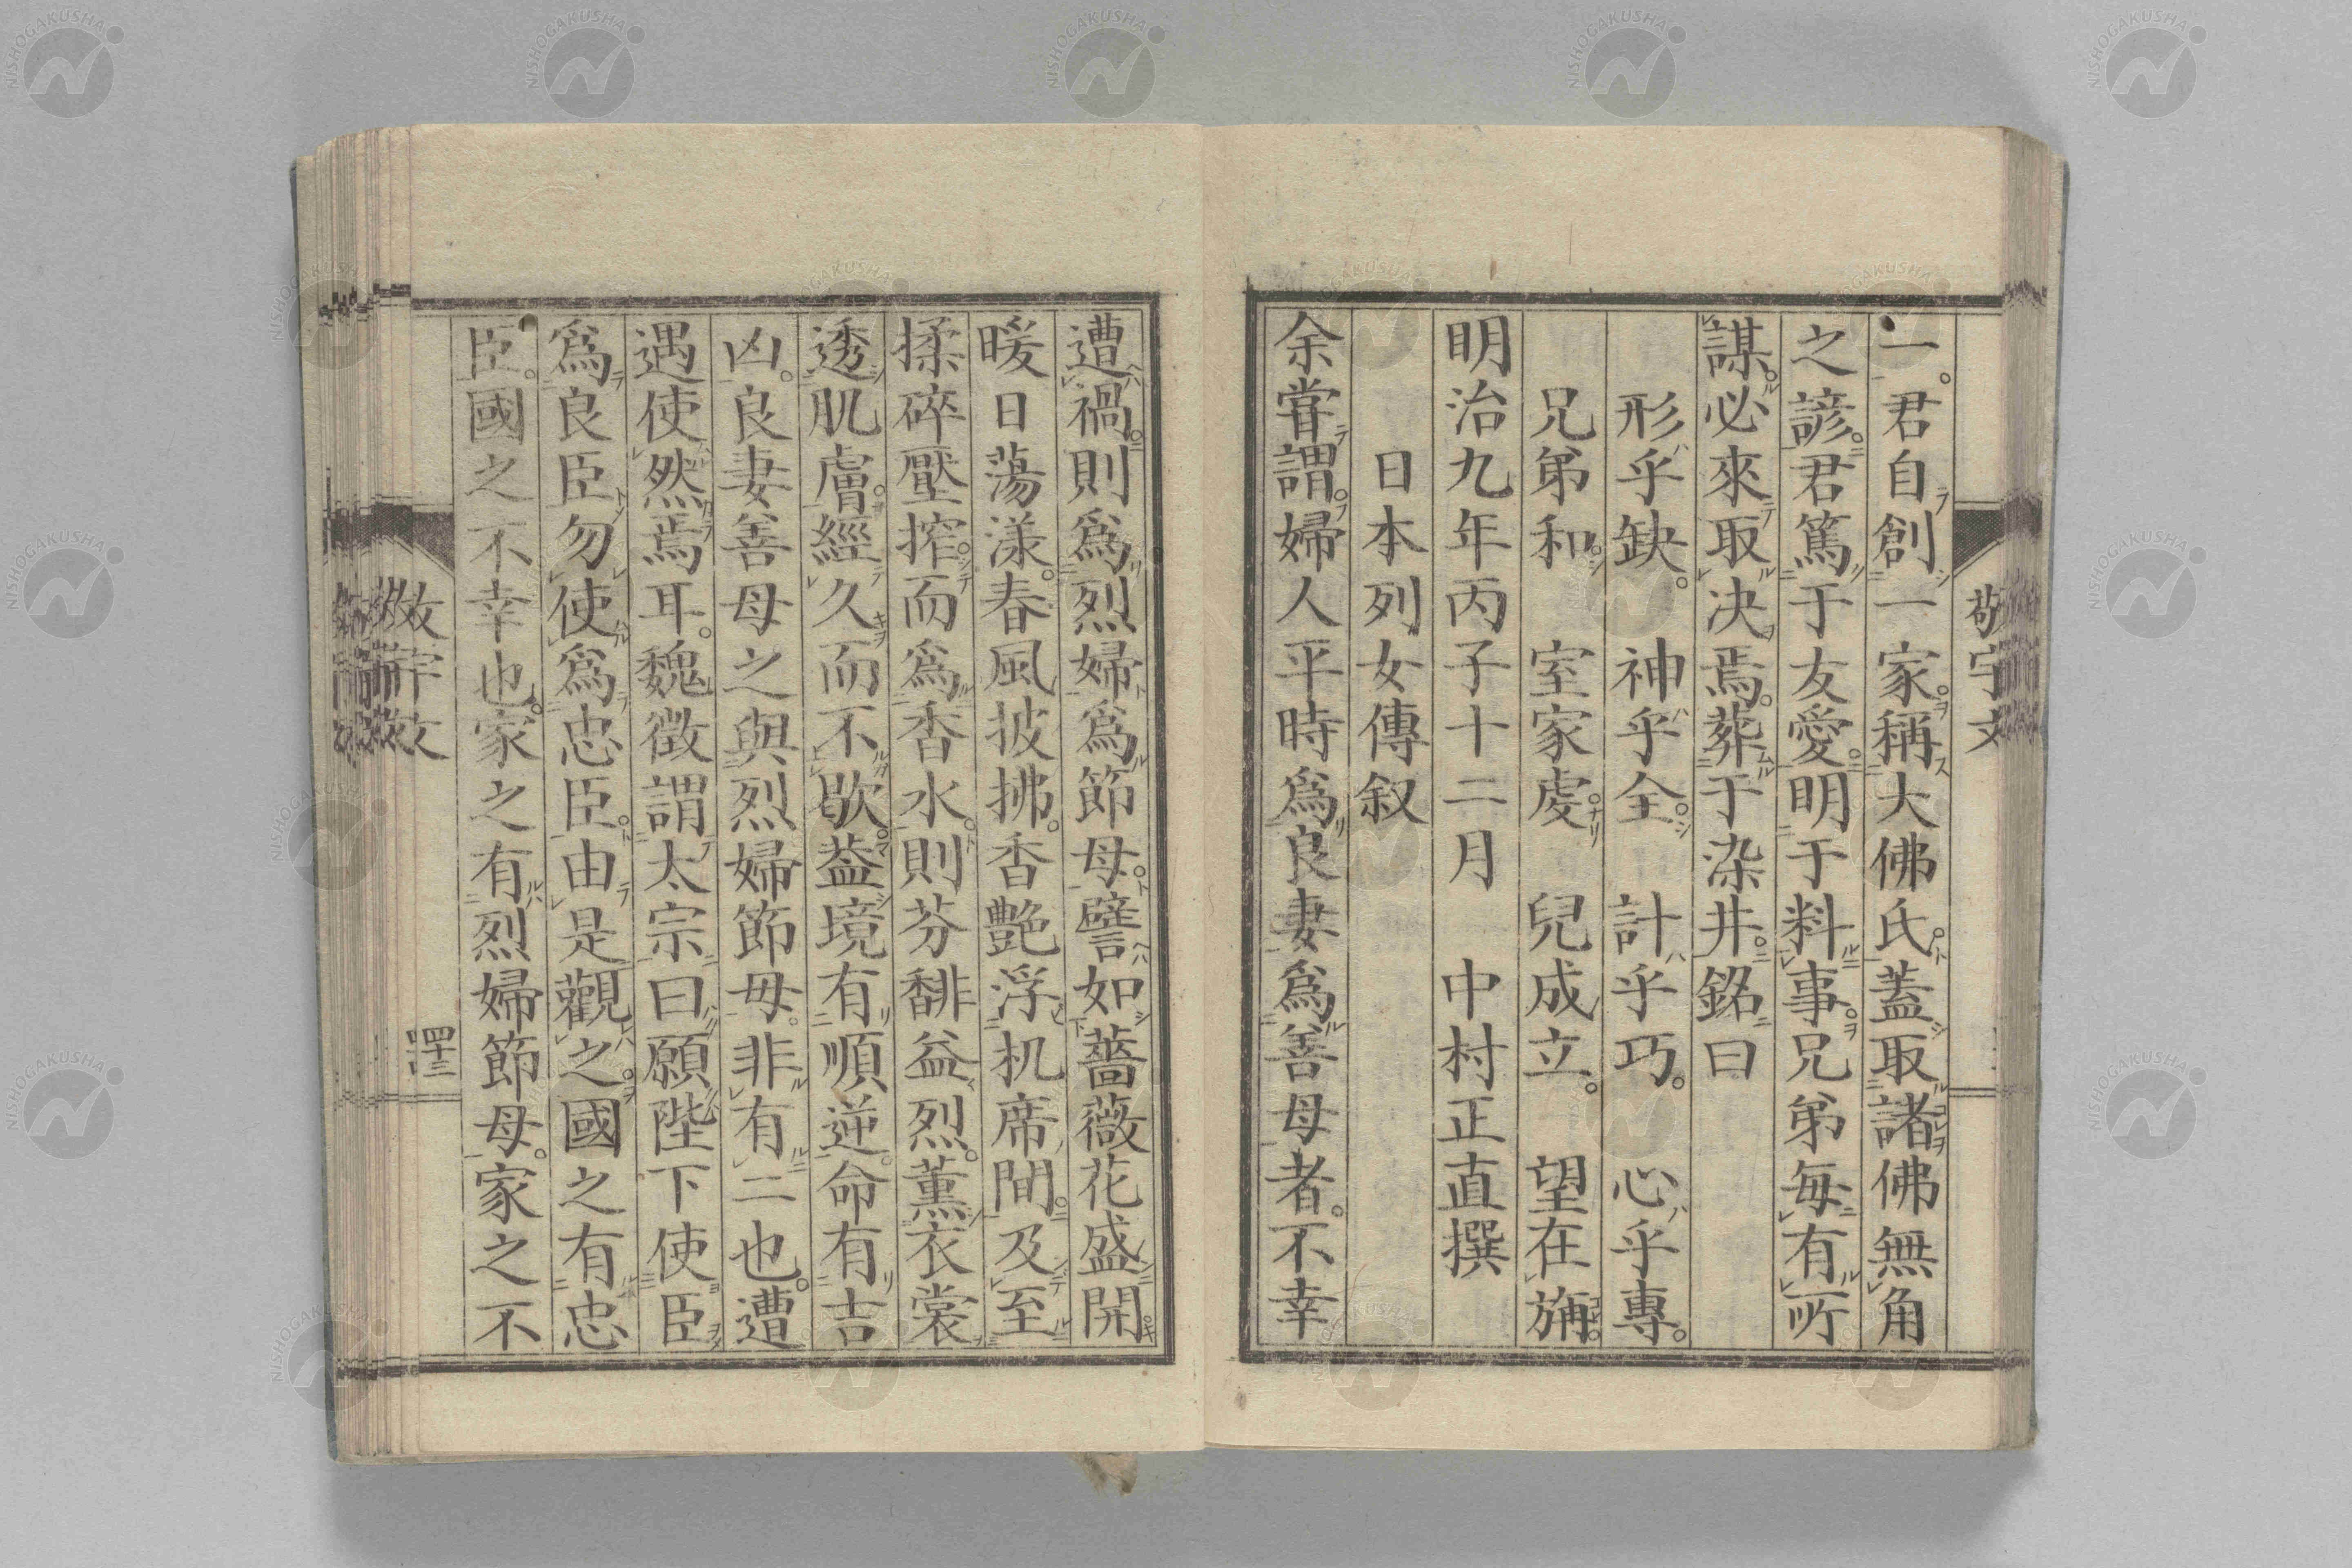 一。君自創一家。稱大佛氏。蓋取諸佛無角
之諺。君篤于友愛。明于料事。兄弟每有所
謀。必來取决焉。葬于染井。銘曰
形乎缺。神乎全。計乎巧。心乎專。
兄弟和。室家處。兒成立。望在旃。
明治九年丙子十二月 中村正直撰
日本列女傳叙
余甞謂。婦人平時爲良妻爲善母者。不幸
遭禍。則爲烈婦爲節母。譬如薔薇花盛開
暖日蕩漾。春風披拂。香艶浮机席間。及至
揉碎壓搾。而爲香水。則芬馡益烈。薰衣裳
透肌膚。經久而不歇。益境有順逆。命有吉
凶。良妻善母之與烈婦節母。非有二也。遭
遇使然焉耳。魏徴謂太宗曰願陛下使臣
爲良臣勿使爲忠臣。由是觀之。國之有忠
臣。國之不幸也。家之有烈婦節母。家之不
敬宇文
敬宇文
四十三
NISHOGAKUSHA